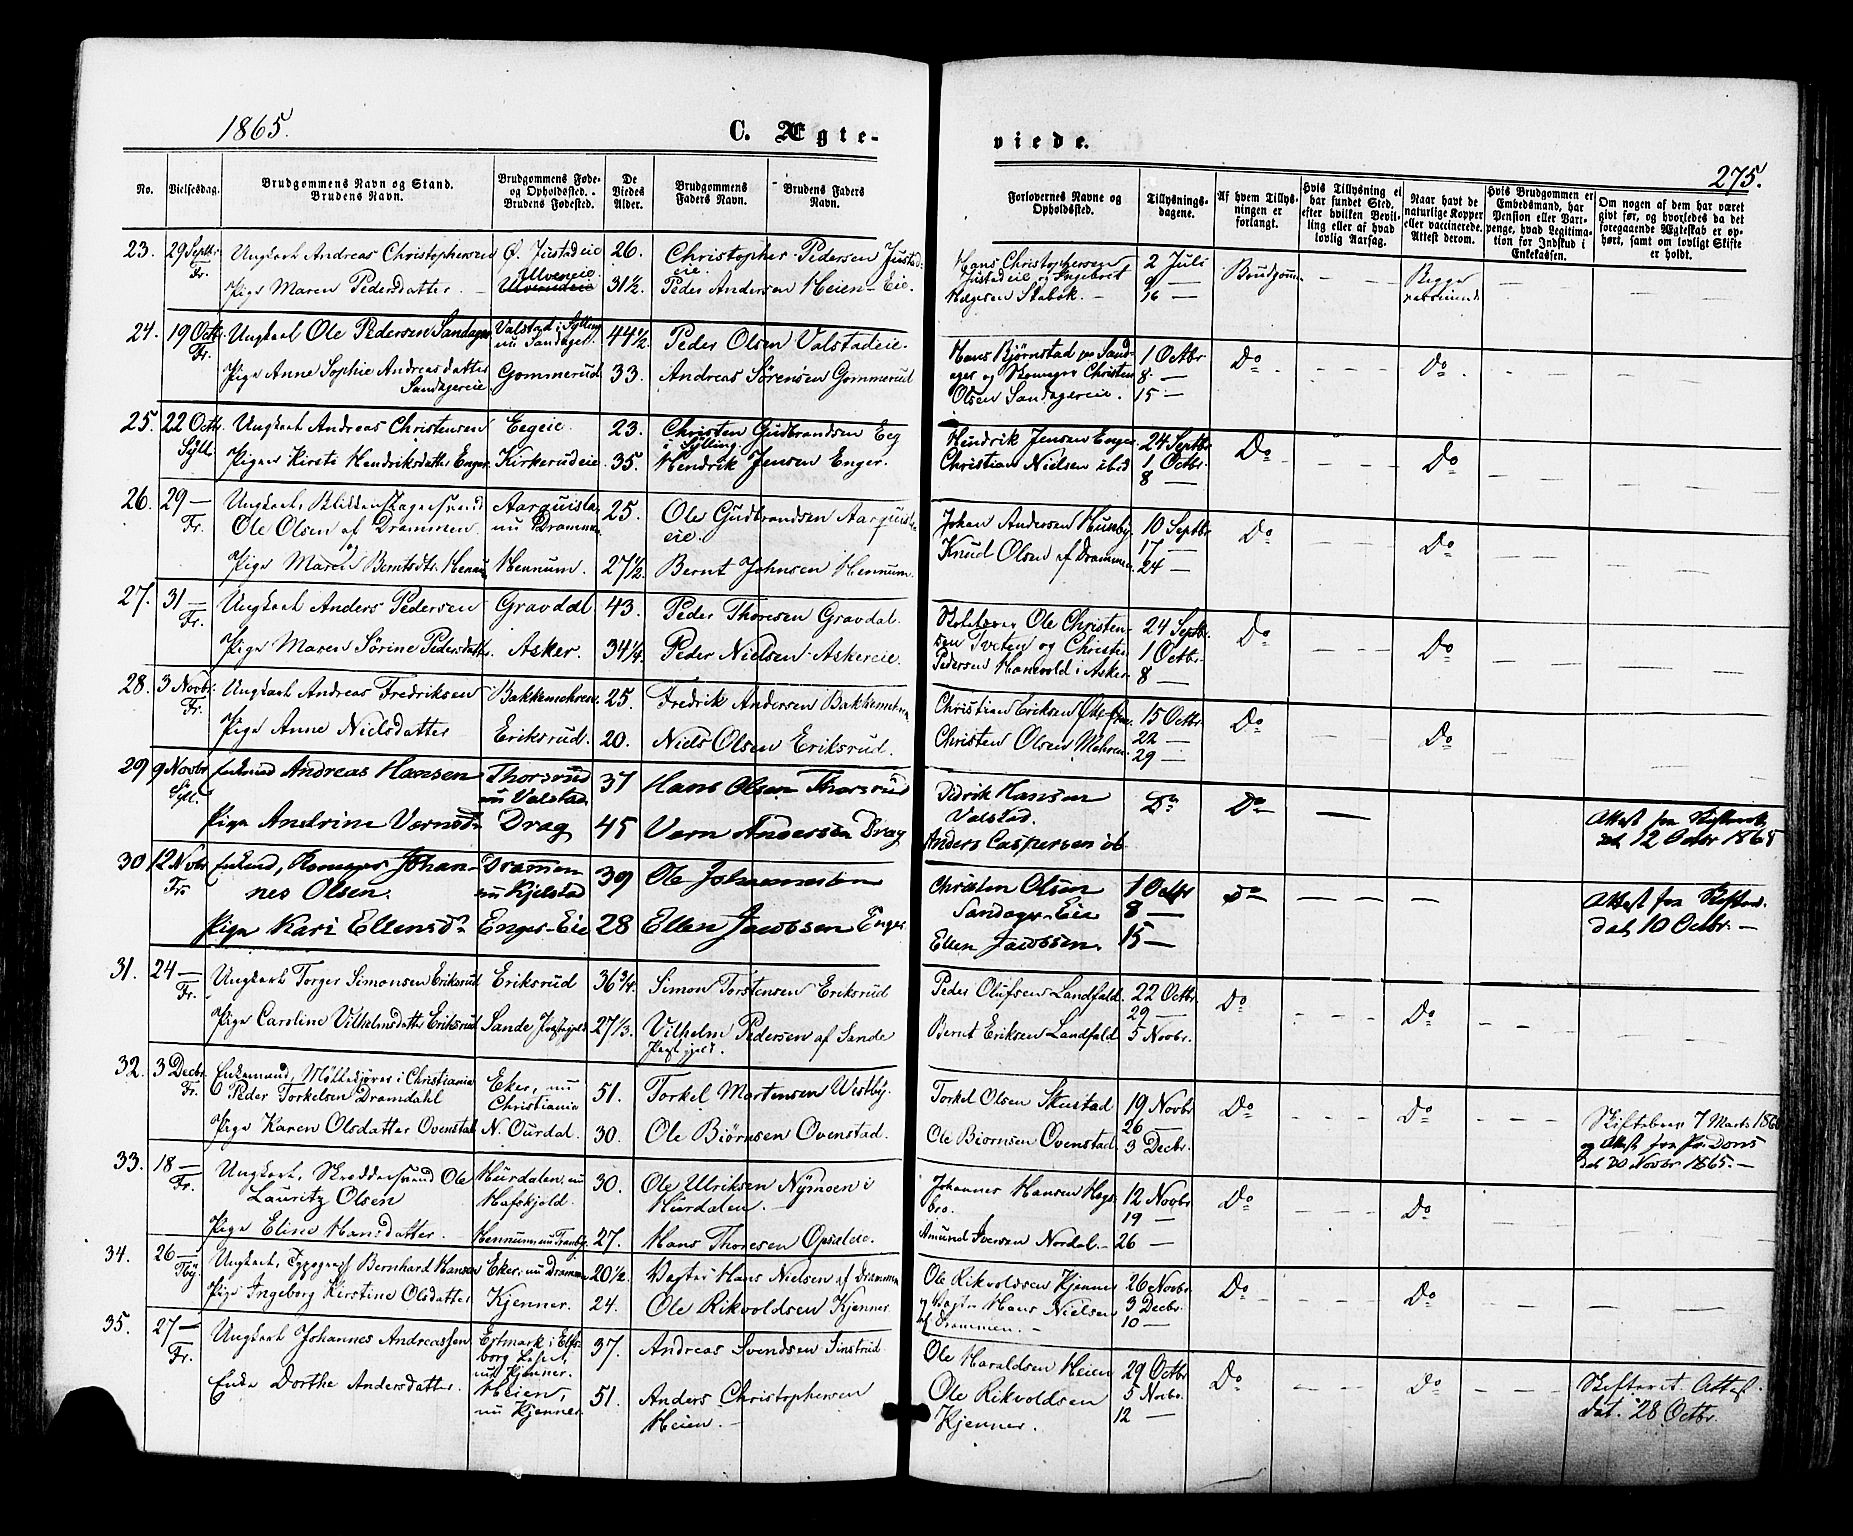 1865.
C. Ægte-
No.
Vielsesdag.
Brudgommens Navn og Stand.
Brudens Navn.
Brudgommens Føde-
og Opholdsted. -
Brudens Fødested.
De
Viedes
Alder.
Brudgommens
Faders Navn.
Brudens Faders
Navn.
23. 29 Septbr Ungkarl Andreas Christophersen Ø. Justadeie 26. Christopher Pedersen Justad-
Fr. Ulveneie eie.
Pige Maren Pedersdatter 31½. Peder Andersen Heien-Eie.
24. 19 Octbr Ungkarl Ole Pedersen Sandager Valstad i Sylling 44½ Peder Olsen Valstadeie.
Fr. nu Sandager.
Pige Anne Sophie Andreasdatter Gommerud 33. Andreas Sørensen Gommerud
Sandagereie.
25. 22 Octbr. Ungkarl Andreas Christensen Eegeie. 23. Christen Gudbrandsen Eeg
Syll. i Sylling.
Pigen Kirsti Hendriksdatter Enger. Kirkerudeie. 35. Hendrik Jensen Enger.
26. 29 — Ungkarl, Blikkenslagersvend 25. Ole Gudbrandsen
Fr. Ole Olsen af Drammen. nu Drammen eie.
Pige Maren Berntsdtr. Hennum Hennum. 27½ Bernt Johnsen Hennum.
27. 31 — Ungkarl Anders Pedersen Gravdal. 43. Peder Thoresen Gravdal.
Fr.
Pige Maren Sørine Pedersdatter. Asker. 34¼ Peder Nielsen Askereie.
28. 3 Novbr. Ungkarl Andreas Fredriksen Bakkemehren. 25. Fredrik Andersen Bakkemehren
Fr.
Pige Anne Nielsdatter Eriksrud. 20. Niels Olsen Eriksrud.
29 9 Novbr Enkemd Andreas Hansen Thorsrud 37 Hans Olsen Thorsrud
Syll. nu Valstad.
Pige Andrine Værnsdr Drag 45 Værn Andersen Drag
30 12 Novbr Enkemd, Johan- Drammen 39 Ole Johannesen
Fr. nes Olsen. nu Kjelstad
Pige Kari Ellensdr Enger-Eie 28 Ellen Jacobsen Enger.
31. 24 — Ungkarl Torger Simonsen Eriksrud Eriksrud 36¾. Simon Torstensen Eriksrud
Fr.
Pige Caroline Vilhelmsdatter Eriksrud Sande Præstegjeld 27⅓. Vilhelm Pedersen af Sande
Præstegjeld.
32. 3 Decbr. Enkemand, i Christiania Eker, nu 51. Torkel Mortensen Westby.
Fr. Peder Torkelsen Dramdahl Christiania
Pige Karen Olsdatter Ovenstad N. Ourdal. 30. Ole Biørnsen Ovenstad.
33. 18 — Ungkarl, Skreddersvend Ole Hurdalen, nu 30. Ole Ulriksen Nymoen i
Fr. Lauritz Olsen Hafskjold. Hurdalen. —
Pige Eline Hansdatter. Hennum, nu Tranby. 27. Hans Thoresen Opsaleie.
34. 26 — Ungkarl, Typograf Bernhard Hansen Eker, nu Drammen 20½ Vagter Hans Nielsen af Drammen
Tby.
Pige Ingeborg Kirstine Olsdatter Kjenner. 24. Ole Rikvoldsen Kjenner.
35. 27 — Ungkarl Johannes Andreassen i Elfs- 37. Andreas Svendsen Sinsrud.
Fr. borg
nu Kjenner.
Enke Dorthe Andersdatter. Heien, 51. Anders Christophersen
nu Kjenner. Heien. —
viede.
275.
Forlovernes Navne og
Opholdsted.
Tillysnings-
dagene.
Af hvem Tillys-
ningen er
forlangt.
Hvis Tillysning ei
har fundet Sted,
efter hvilken Bevil-
ling eller af hvad
lovlig Aarsag.
Naar havt de
naturlige Kopper
eller vaccinerede.
Attest derom.
Hvis Brudgommen er
Embedsmand, har
Pension eller Vart-
penge, hvad Legitima-
tion for Indskud i
Enkekassen.
Om nogen af dem har været
givt før, og hvorledes da det
foregaaende Ægteskab er op-
hørt, samt om lovligt Skifte
er holdt.
Hans Christophersen 2 Juli Brudgommen — Begge — —
Justadeie og Ingebret 9 — vaccinerede
Stabæk. — 16 —
Hans Bjørnstad Sand- 1 Octbr Do Do
ager og Christen 8 —
Olsen Sandagereie. 15 —
Hendrik Jensen Enger. 24 Septbr Do Do
Christian Nielsen ibid 1 Octbr.
8 —
Johan Andersen Huseby. 10 Septbr Do Do
Knud Olsen af Drammen. 17 —
24 —
Ole Christen- 24 Septbr. Do Do
sen Tveten og Christen 1 Octbr.
Pedersen Hanevold i Asker 8 —
Christian Eriksen 15 Octbr. Do Do
Christen Olsen Mehren. 22 —
29 —
Didrik Hansen Do Do —
Valstad.
Anders Caspersen ib.
Attest fra Skifteretten
dat 12 Octbr 1865
Christen Olsen 1 Octbr Do — — —
Sandager-Eie 8 —
Ellen Jacobsen. 15 —
Attest fra Skifteret.
dat 10 Octbr. —
Peder Olufsen Landfald. 22 Octbr. Do Do
29 —
Bernt Eriksen Landfald 5 Novbr.
Torkel Olsen Skustad 19 Novbr Do Do
26 —
Ole Biørnsen Ovenstad. 3 Decbr.
Skiftebrev 7 Marts
og Attest fra
dat 20 Novbr 1865. —
Johannes Hansen Hags- 12 Novbr Do Do
bro. 19 —
Amund Iversen Nordal. — 26 —
Ole Rikvoldsen Kjenner 26 Novbr. Do Do
og Vagter Hans Nielsen 3 Decbr.
af Drammen. — 10 —
Ole Haraldsen Heien 29 Octbr. Do Do
Ole Rikvoldsen 5 Novbr.
Kjenner. 12 —
Skifteret. Attest
dat. 28 Octbr.